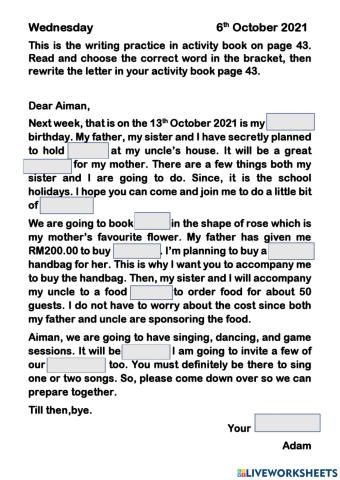 Wednesday 6th October 2021
This is the writing practice in activity book on page 43.
Read and choose the correct word in the bracket, then
rewrite the letter in your activity book page 43.
Dear Aiman,
Next week, that is on the 13th October 2021 is my
birthday. My father, my sister and I have secretly planned
to hold at my uncle's house. It will be a great
for my mother. There are a few things both my
sister and I are going to do. Since, it is the school
holidays. I hope you can come and join me to do a little bit
of
We are going to book in the shape of rose which is
my mother's favourite flower. My father has given me
RM200.00 to buy . I'm planning to buy a
handbag for her. This is why I want you to accompany me
to buy the handbag. Then, my sister and I will accompany
my uncle to a food to order food for about 50
guests. I do not have to worry about the cost since both
my father and uncle are sponsoring the food.
Aiman, we are going to have singing, dancing, and game
sessions. It will be I am going to invite a few of
our too. You must definitely be there to sing
one or two songs. So, please come down over so we can
prepare together.
Till then,bye.
Your
Adam
LIVEWORKSHEETS